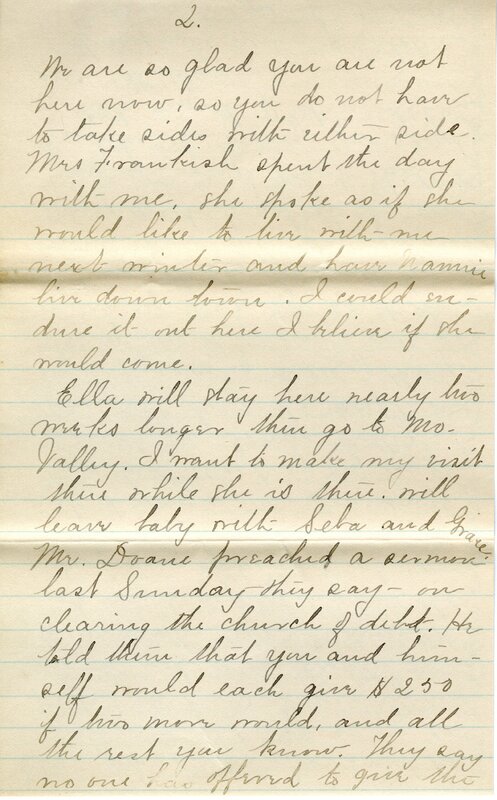 2.
We are so glad you are not
here now, so you do not have
to take sides with either side.
Mrs Frankish spent the day
with me, she spoke as if she
would like to live with me
next winter and have Nannie
live down town. I could en-
dure it out here I believe if she
would come.
Ella will stay here nearly two
weeks longer then go to Mo.
Valley. I want to make my visit
there while she is there. will
leave baby with Seba and Grace.
Mr. Doane preached a sermon
last Sunday - they say - on
clearing the church of debt. He
told them that you and him-
self would each give $250
if two more would, and all
the rest you know. They say
no one has offered to give the